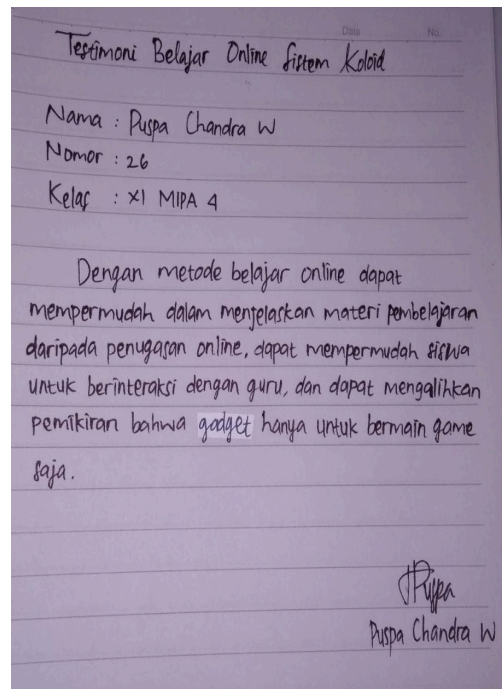 Data No.
Testimoni Belajar Online Sistem Koloid
Nama : Puspa Chandra W
Nomor : 26
Kelas : XI MIPA 4
Dengan metode belajar online dapat
mempermudah dalam menjelaskan materi pembelajaran
daripada penugasan online, dapat mempermudah siswa
untuk berinteraksi dengan guru, dan dapat mengalihkan
pemikiran bahwa gadget hanya untuk bermain game
saja.
Puspa
Puspa Chandra W